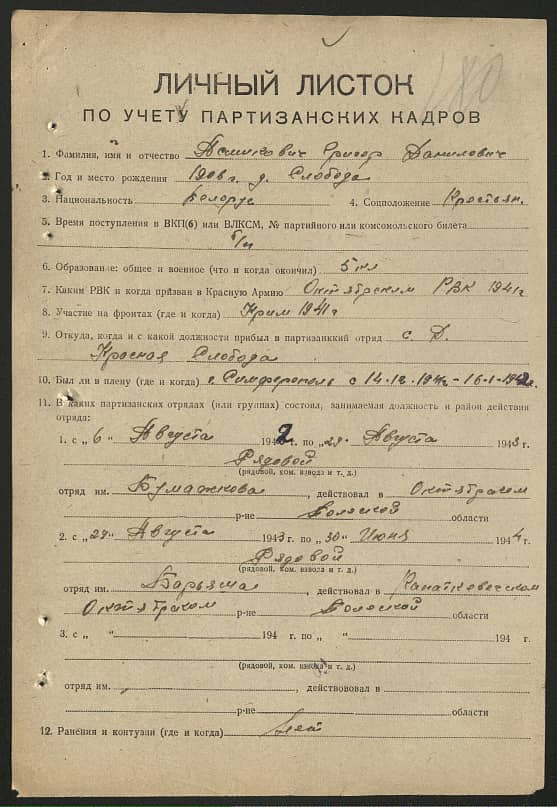 ЛИЧНЫЙ ЛИСТОК
ПО УЧЕТУ ПАРТИЗАНСКИХ КАДРОВ
1. Фамилия, имя и отчество Григор Данилович
2. Год и место рождения 1908 г. д. Слобода
3. Национальность Белорус 4. Соцположение Крестьян.
5. Время поступления в ВКП(б) или ВЛКСМ, № партийного или комсомольского билета
б/п
6. Образование: общее и военное (что и когда окончил) 5 кл
7. Каким РВК и когда призван в Красную Армию Октябрским РВК 1941 г
8. Участие на фронтах (где и когда) Крим 1941 г
9. Откуда, когда и с какой должности прибыл в партизанкий отряд с. Д.
Красная Слобода
10. Был ли в плену (где и когда) г. Симферополь с
11. В каких партизанских отрядах (или группах) состоял, занимаемая должность и район действия
отряда:
1. с „6" Августа 1942 г. по „29" Августа 1943 г.
Рядовой
(рядовой, ком. взвода и т. д.)
отряд им. Бумажкова, действовал в Октябрском
р-не Полоской области
2. с „29" Августа 1943 г. по „30" Июня 1944 г.
Рядовой
(рядовой, ком. взвода и т. д.)
отряд им., действовал в
Октябрском р-не Полоской области
3. с „ " 194 г. по „ " 194 г.
(рядовой, ком. взвода и т. д.)
отряд им., действововал в
р-не области
12. Ранения и контузии (где и когда) Нет